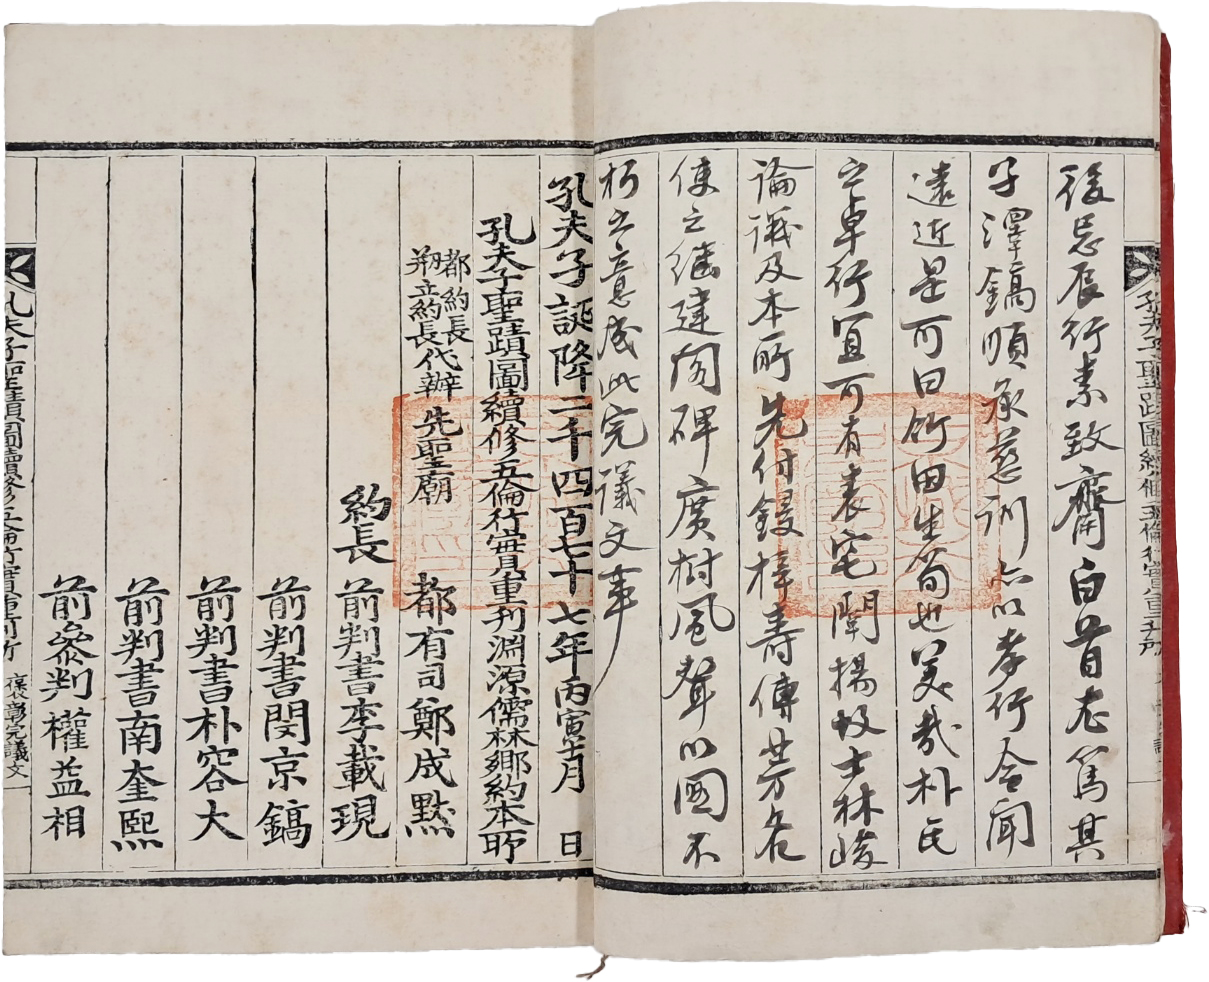 後忌辰行素致齋白首志篤其
子澤鎬順承慈訓亦以孝行令聞
遠近是可曰竹田生筍也美哉朴氏
之卓行宜可有表宅闡揚故士林峻
論議及本所先付鋟梓壽傳芳名
使之繼建閣碑廣樹風聲以圖不
朽之意成此完議文事
孔夫子誕降二千四百七十七年丙寅十一月 日
孔夫子聖蹟圖續修五倫行實重刊淵源儒林鄉約本所
都約長
刱立約長代辦 先聖廟 都有司鄭成黙
約長 前判書李載現
前判書閔京鎬
前判書朴容大
前判書南奎熙
前參判權益相
孔夫子聖蹟圖續修五倫行實重刊所 褒彰完議文